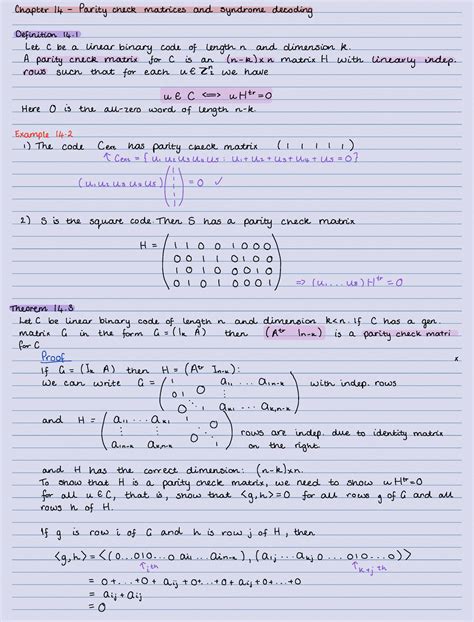 Chapter 14 - Parity check matrices and syndrome decoding
Definition 14.1
Let C be a linear binary code of length n and dimension k.
A parity check matrix for C is an (n-k)×n matrix H with linearly indep.
rows such that for each u ∈ ℤ₂ⁿ we have
u ∈ C ⟺ uHᵗʳ=0
Here 0 is the all-zero word of length n-k.
Example 14.2
1) The code Cₑₓₜ has parity check matrix (1 1 1 1 1)
↑ Cₑₓₜ = { u₁ u₂ u₃ u₄ u₅ : u₁+u₂+u₃+u₄+u₅ = 0}
(u₁ u₂ u₃ u₄ u₅) (1 1 1 1 1) = 0 ✓
2) S is the square code. Then S has a parity check matrix
H = ( 1 1 0 0 1 0 0 0
0 0 1 1 0 1 0 0
1 0 1 0 0 0 1 0
0 1 0 1 0 0 0 1 ) ⇒ (u₁ ... u₈) Hᵗʳ = 0
Theorem 14.3
Let C be linear binary code of length n and dimension k<n. If C has a gen.
matrix G in the form G=(Iₖ A) then (Aᵗʳ Iₙ₋ₖ) is a parity check matri
for C
x
Proof
If G = (Iₖ A) then H = (Aᵗʳ Iₙ₋ₖ):
We can write G = ( 1 0 a₁₁ ... a₁ₙ₋ₖ
0 1 aₖ₁ ... aₖ,ₙ₋ₖ ) with indep. rows
and H = ( a₁₁ ... aₖ₁ 1 0
a₁ₙ₋ₖ ... aₖₙ₋ₖ 0 1 ) rows are indep. due to identity matrix
on the right.
and H has the correct dimension: (n-k)×n.
To show that H is a parity check matrix, we need to show uHᵗʳ=0
for all u ∈ C, that is, show that <g,h>=0 for all rows g of G and all
rows h of H.
If g is row i of G and h is row j of H, then
<g,h> = <(0...010...0 aᵢ₁ ... aᵢₙ₋ₖ), (a₁ⱼ ... aₖⱼ 0 ... 010...0)>
↑ᵢth ↑ₖ₊ⱼth
= 0+...+0+ aᵢⱼ +0+...+0+ aᵢⱼ +0+...+0
= aᵢⱼ + aᵢⱼ
= 0